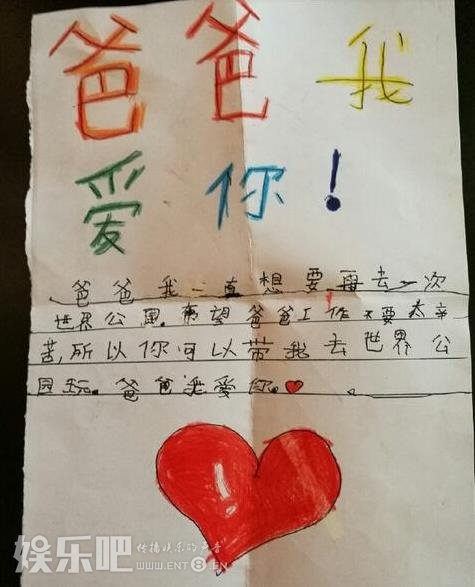 爸爸我
爱你!
爸爸我一直想要再去一次
世界公园,希望爸爸工作不要太辛
苦,所以你可以带我去世界公
园玩。爸爸我爱你。
娱乐吧
传播娱乐的声音
www.ENT8.com